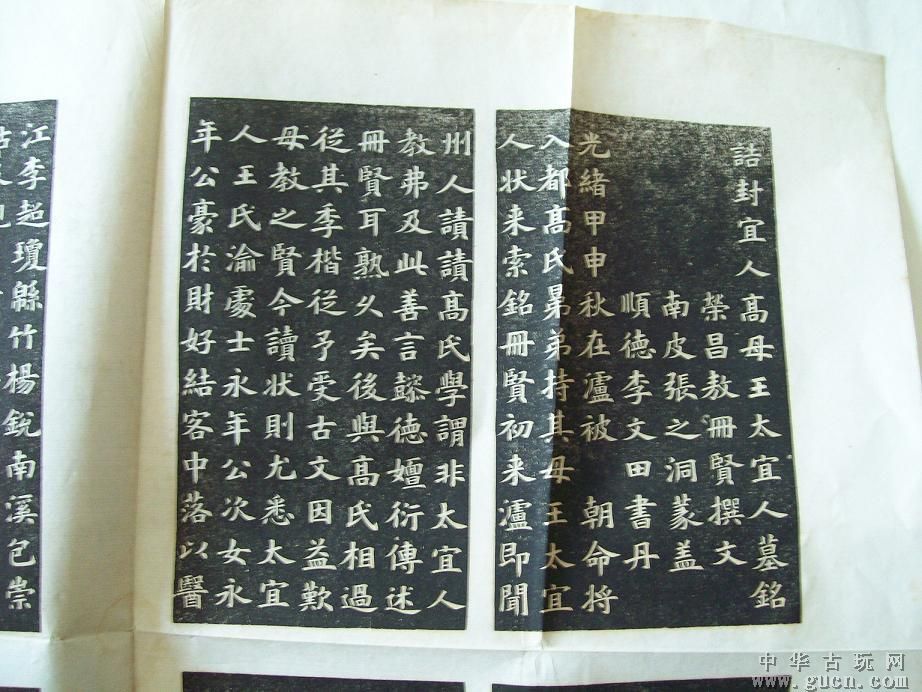 誥封宜人高母王太宜人墓銘
榮昌敖冊賢撰文
南皮張之洞篆蓋
順德李文田書丹
光緒甲申秋在瀘被 朝命將
入都髙氏晜弟持其母王太宜
人状来索銘冊賢初来瀘即聞
州人請讀髙氏學謂非太宜人
教弗及此善言懿德嬗衍傳述
冊賢耳熟久矣後與髙氏相過
從其季楷從予受古文因益歎
母教之賢今讀状則尤悉太宜
人王氏渝處士永年公次女永
年公豪於財好結客中落以醫
江李超瓊縣竹楊銳南溪包崇
中华古玩网
www.gucn.com